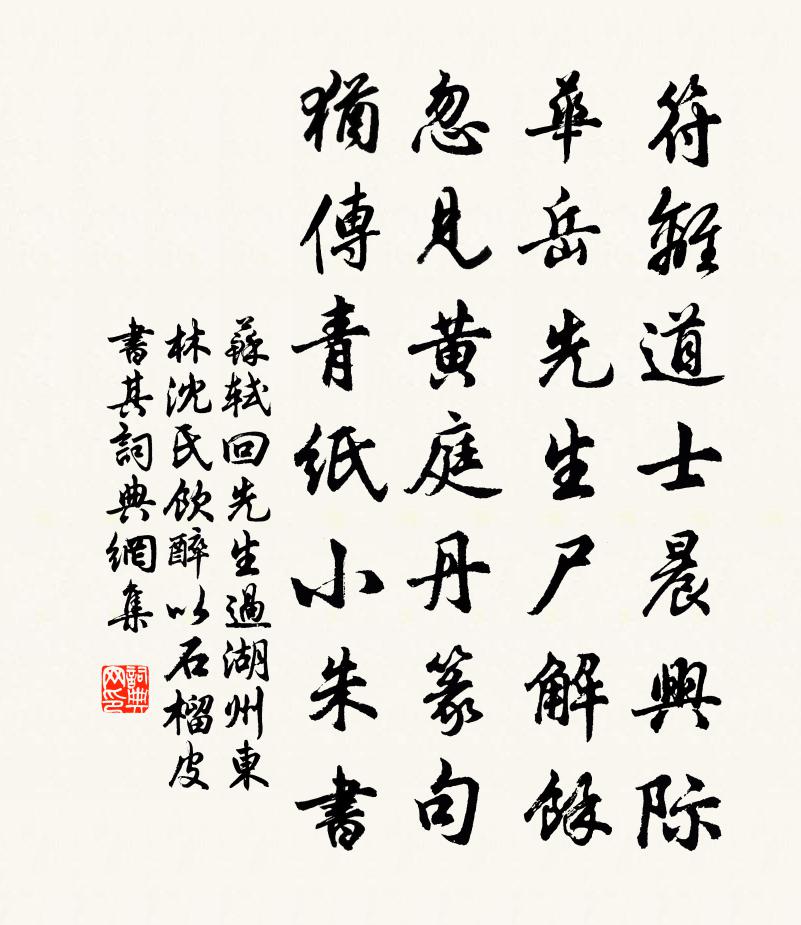 符離道士晨興际
華岳先生尸解餘
忽見黄庭丹篆句
猶傳青紙小朱書
蘇軾回先生過湖州東
林沈氏飲醉以石榴皮
書其詞典網集
詞典网印